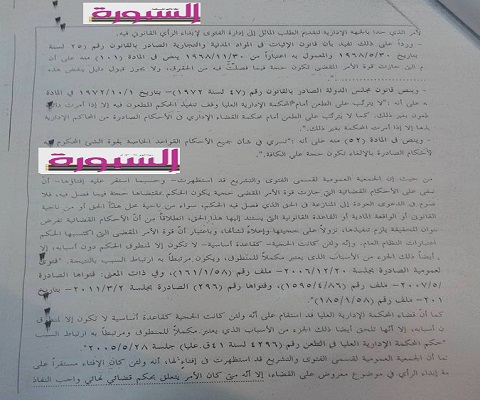 السبورة
لأمر الذي حدا بالجهة الإدارية لتقديم الطلب الماثل إلى إدارة الفتوى لإبداء الرأي القانوني فيه.
- ورداً على ذلك نفيد بأن قانون الإثبات في المواد المدنية والتجارية الصادر بالقانون رقم (٢٥) لسنة
بتاريخ ١٩٦٨/٥/٣٠ والمعمول به اعتباراً من ١٩٦٨/١١/٣٠ ينص في المادة (١٠١) منه على أن
م التي حازت قوة الأمر المقضي تكون حجة فيما فصلت فيه من الحقوق، ولا يجوز قبول دليل ينقض هذه
- وينص قانون مجلس الدولة الصادر بالقانون رقم (٤٧ لسنة ١٩٧٢)- بتاريخ ١٩٧٢/١٠/١ في المادة
ه على أنه: "لا يترتب على الطعن أمام المحكمة الإدارية العليا وقف تنفيذ الحكم المطعون فيه إلا إذا أمرت
طعون بغير ذلك. كما لا يترتب على الطعن أمام محكمة القضاء الإداري في الأحكام الصادرة من المحاكم الإدارية
يذها إلا إذا أمرت المحكمة بغير ذلك".
- وينص في المادة (٥٢) منه على أنه: "تسري في شأن جميع الأحكام القواعد الخاصة بقوة الشئ المحكوم فيه
لأحكام الصادرة بالإلغاء تكون حجة على الكافة".
السبورة
من حيث إن الجمعية العمومية لقسمي الفتوى والتشريع قد استظهرت- وحسبما استقر عليه إفتاؤها- أن
ضفى على الأحكام القضائية التي حازت قوة الأمر المقضي حجية يكون الحكم بمقتضاها حجة فيما فصل فيه، فلا
صوم في الدعوى العودة إلى المنازعة في الحق الذي فصل فيه الحكم، سواء من ناحية محل هذا الحق أو من ناحية
القانوني أو الواقعة المادية أو القاعدة القانونية التي يستند إليها هذا الحق، انطلاقاً من أن الأحكام القضائية تفرض
نوان الحقيقة يلزم تنفيذها، نزولاً على حجيتها وإعلاءً لشأنها، وباعتبار أن قوة الأمر المقضي التي اكتسبها الحكم
اعتبارات النظام العام. وإنه ولئن كانت الحجية -كقاعدة أساسية- لا تكون إلا لمنطوق الحكم دون أسبابه، إلا
أيضاً ذلك الجزء من الأسباب الذي يعتبر مكملاً للمنطوق، ويكون مرتبطاً به ارتباط السبب بالنتيجة. "فتوى
لعمومية الصادرة بجلسة ٢٠٠٦/١٢/٢٠- ملف رقم (١٦١/١/٥٨)، وفي ذات المعنى: فتواها الصادرة
٢٠٠٧/٥/- ملف رقم (١٥٩٥/٤/٨٦)، وفتواها رقم (٢٩٦) الصادرة بجلسة ٢٠١١/٣/٢- بتاريخ
٢٠١- ملف رقم (١٨٥/١/٥٨)".
كما أن قضاء المحكمة الإدارية العليا قد استقام على أنه ولئن كانت الحجية كقاعدة أساسية لا تكون إلا لمنطوق
ن أسبابه، إلا أنها تلحق أيضاً ذلك الجزء من الأسباب الذي يعتبر مكملاً للمنطوق ومرتبطاً به ارتباط السبب
"حكم المحكمة الإدارية العليا في الطعن رقم (٤٢٩٦ لسنة ٤١ق.عليا) جلسة ٢٠٠٥/٥/٢٨".
كما أن الجمعية العمومية لقسمي الفتوى والتشريع قد استظهرت في إفتاء لها، أنه ولئن كان الإفتاء مستقراً على
مة إبداء الرأي في موضوع معروض على القضاء، إلا أنه متى كان الأمر يتعلق بحكم قضائي نهائي واجب النفاذ